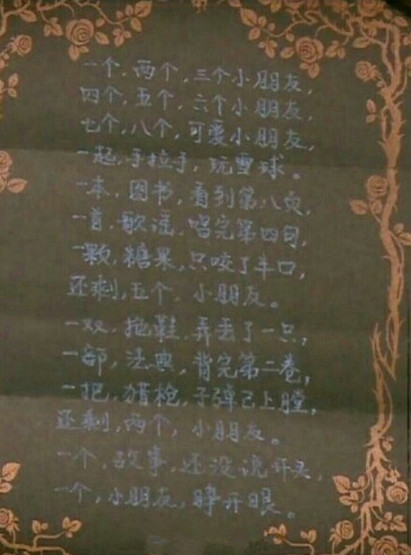 一个,两个,三个小朋友,
四个,五个,六个小朋友,
七个,八个,可爱小朋友,
一起,手拉手,玩雪球。
一本,图书,看到第八页,
一首,歌谣,唱完第四句,
一颗,糖果,只咬了半口,
还剩,五个,小朋友。
一双,拖鞋,弄丢了一只,
一部,法典,背完第二卷,
一把,猎枪,子弹已上膛,
还剩,两个,小朋友。
一个,故事,还没说开头,
一个,小朋友,睁开眼。